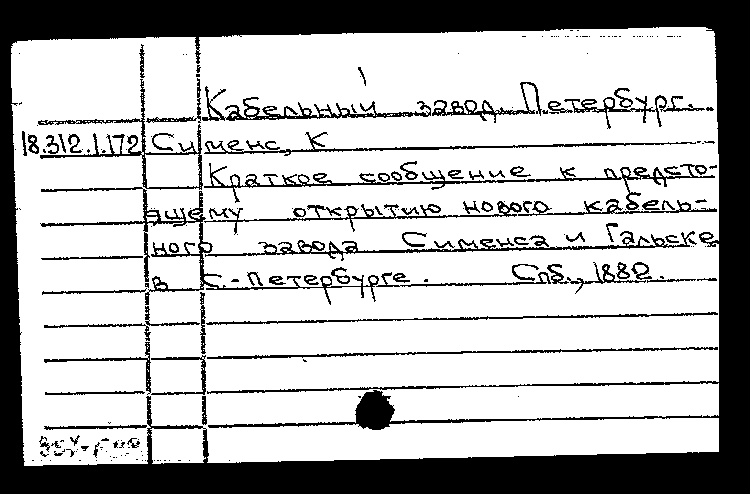 Кабельный завод. Петербург.
18.312.1.172 Сименс, К
Краткое сообщение к предсто-
ящему открытию нового кабель-
ного завода Сименса и Гальске
в С.-Петербурге. Спб., 1882.